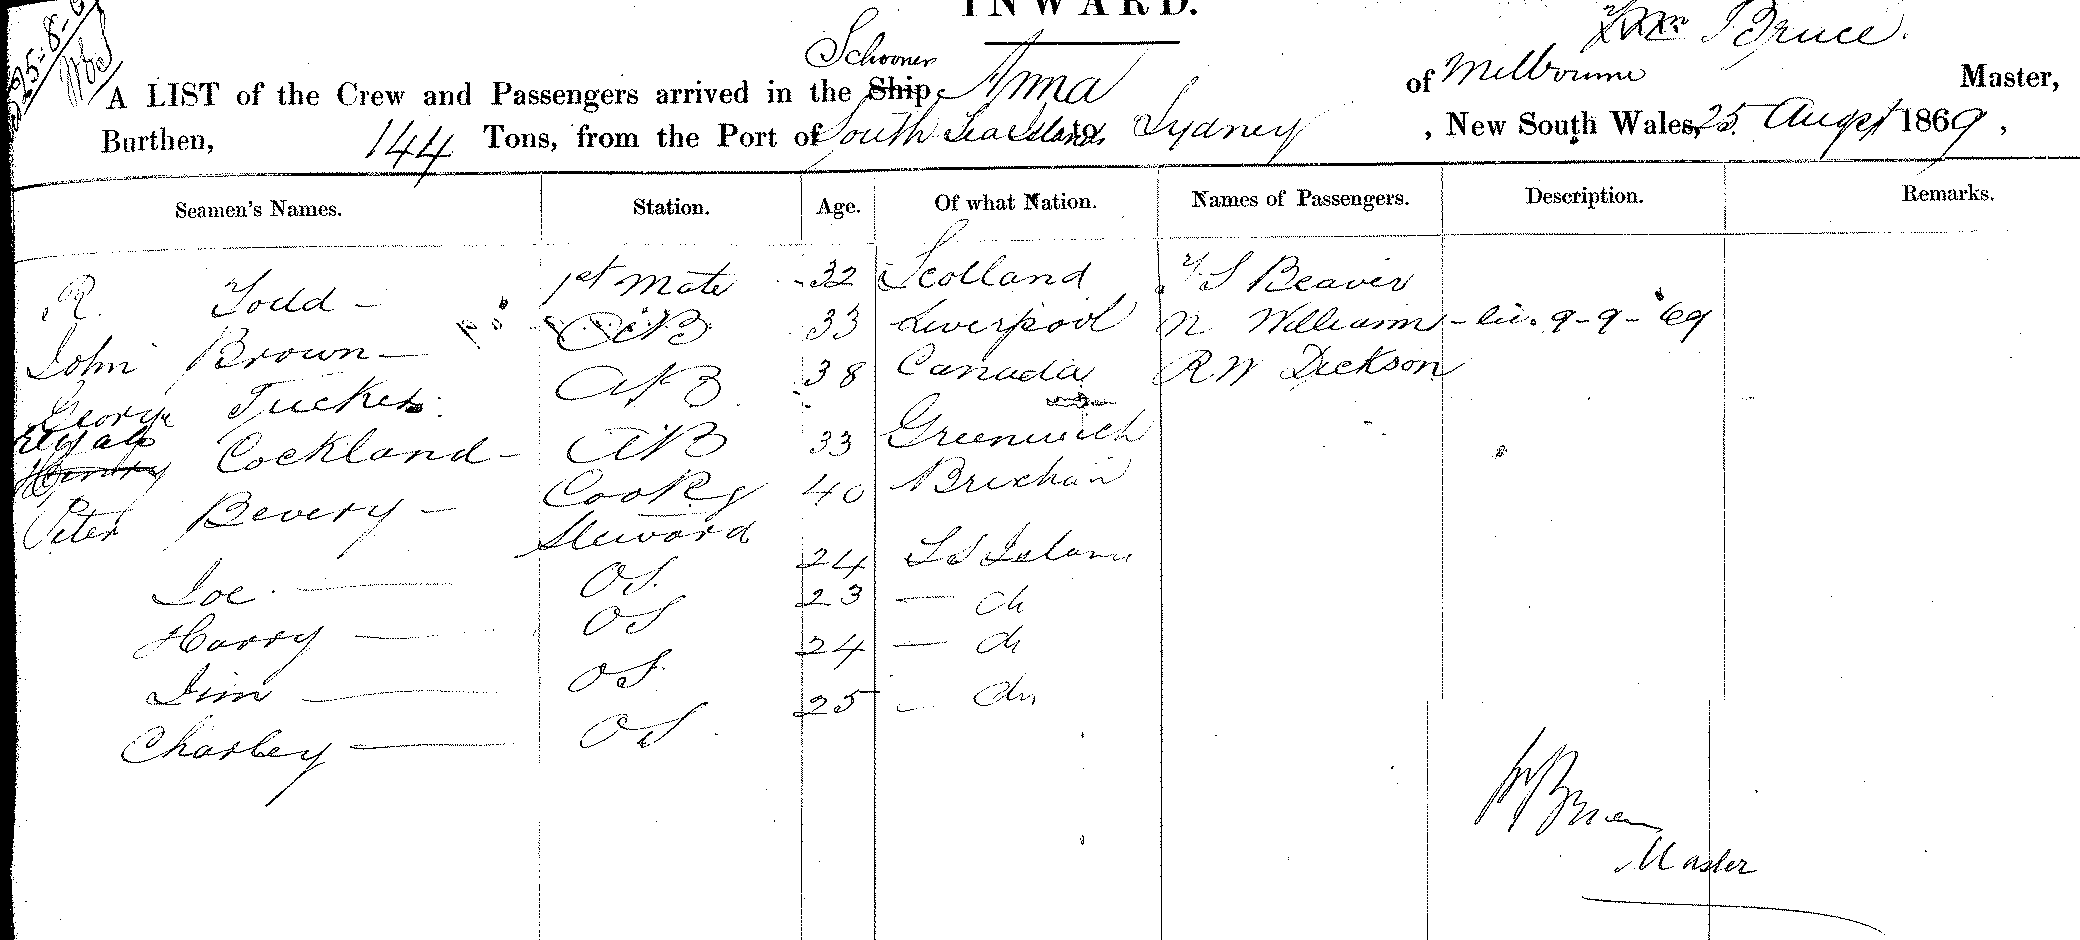 INWARD.
Schooner Bruce.
A LIST of the Crew and Passengers arrived in the Ship Anna of Melbourne Master,
Burthen, 144 Tons, from the Port of South Sea Islands to Sydney , New South Wales, 25 Augst 1869 ,
Seamen's Names. Station. Age. Of what Nation. Names of Passengers. Description. Remarks.
R. Todd - 1st Mate 32 Scotland T S Beaver
John Brown - AB 33 Liverpool N William - 9-9-69
George Tucker AB 38 Canada R W Dickson
Cockland - AB 33 Greenwich
Peter Bevery - Cook & 40 Brixham
Steward
Joe. OS. 24 S S Islan
Harry OS 23 - do
Jim OS 24 - do
Charley OS 25 - do
Master